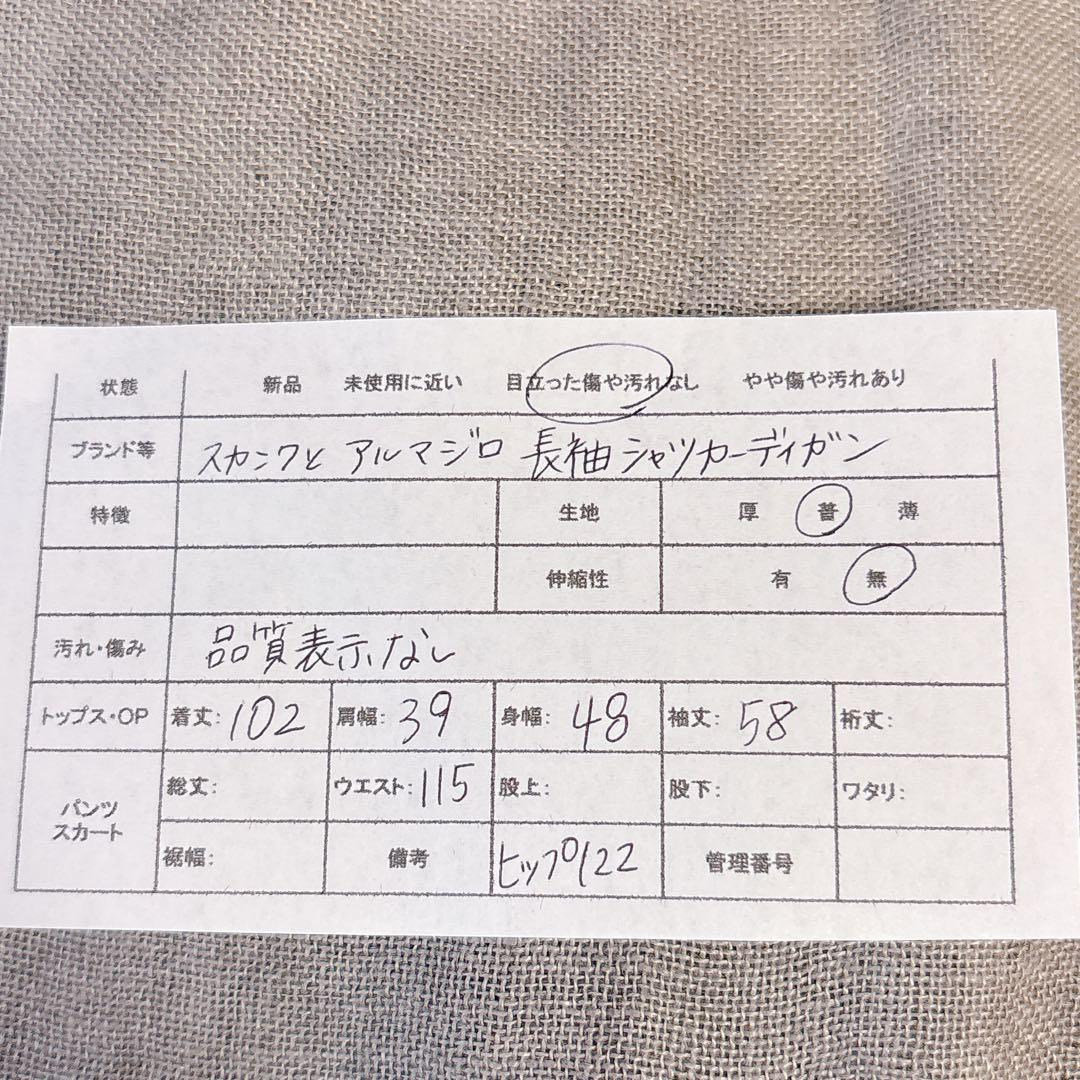 状態 新品 未使用に近い 目立った傷や汚れなし やや傷や汚れあり
ブランド等 スカンクと アルマジロ 長袖シャツカーディガン
特徴 生地 厚 普 薄
伸縮性 有 無
汚れ・傷み 品質表示なし
トップス・OP 着丈:102 肩幅:39 身幅:48 袖丈:58 裄丈:
パンツ スカート 総丈: ウエスト:115 股上: 股下: ワタリ:
裾幅: 備考 ヒップ122 管理番号